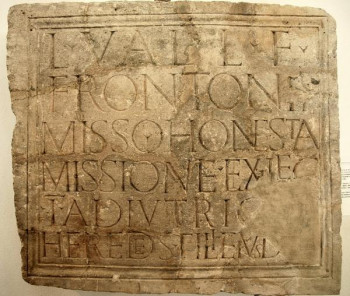 L VAL L F
FRONTON
MISSO HONESTA
MISSIONE EX LEG
I ADIVTRIC
HERED